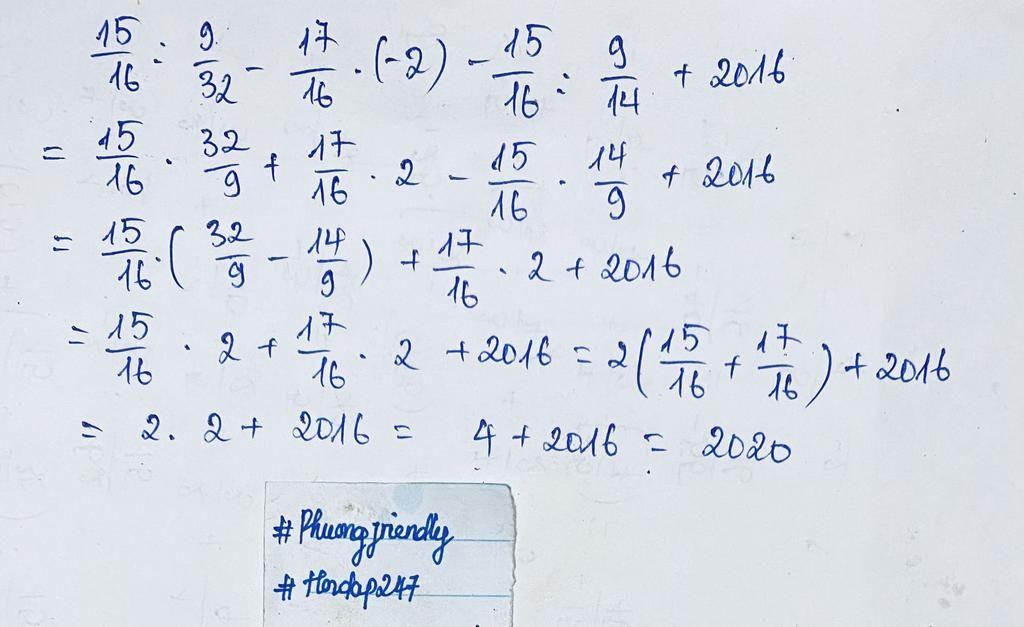 15/16 : 9/32 - 17/16 . (-2) - 15/16 : 9/14 + 2016
= 15/16 . 32/9 + 17/16 . 2 - 15/16 . 14/9 + 2016
= 15/16 . ( 32/9 - 14/9 ) + 17/16 . 2 + 2016
= 15/16 . 2 + 17/16 . 2 + 2016 = 2 ( 15/16 + 17/16 ) + 2016
= 2 . 2 + 2016 = 4 + 2016 = 2020
#Phuongfriendly
#Hoidap247